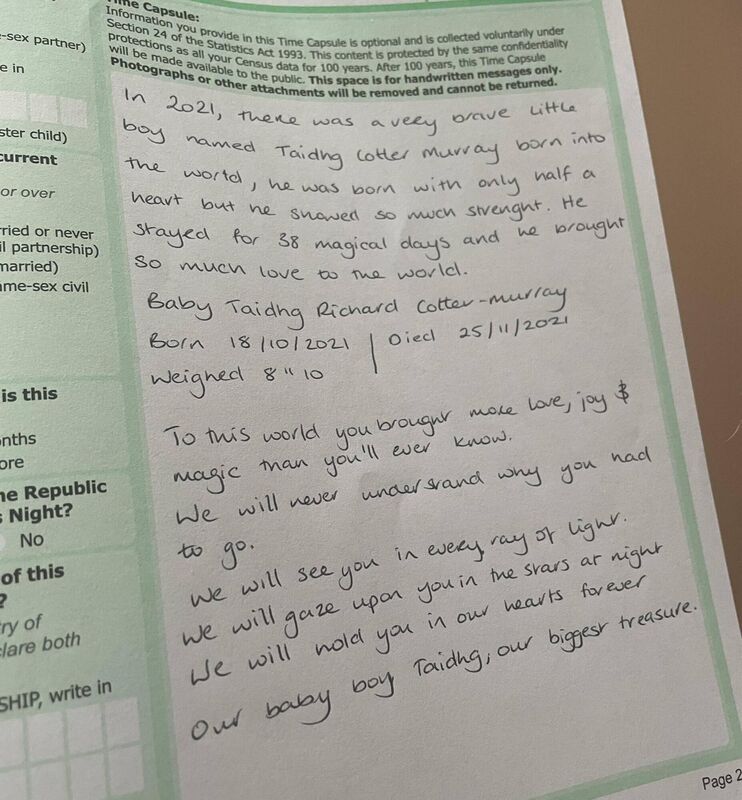 Time Capsule:
Information you provide in this Time Capsule is optional and is collected voluntarily under
Section 24 of the Statistics Act 1993. This content is protected by the same confidentiality
protections as all your Census data for 100 years. After 100 years, this Time Capsule
will be made available to the public. This space is for handwritten messages only.
Photographs or other attachments will be removed and cannot be returned.
In 2021, there was a very brave little
boy named Taidhg Cotter Murray born into
the world, he was born with only half a
heart but he showed so much strenght. He
stayed for 38 magical days and he brought
so much love to the world.
Baby Taidhg Richard Cotter-Murray
Born 18/10/2021 | Died 25/11/2021
Weighed 8"10
To this world you brought more love, joy &
magic than you'll ever know.
We will never understand why you had
to go.
We will see you in every ray of light.
We will gaze upon you in the stars at night
We will hold you in our hearts forever
Our baby boy Taidhg, our biggest treasure.
-sex partner)
e in
ster child)
current
or over
rried or never
il partnership)
married)
me-sex civil
is this
nths
ore
he Republic
s Night?
No
of this
?
ry of
clare both
SHIP, write in
Page 2